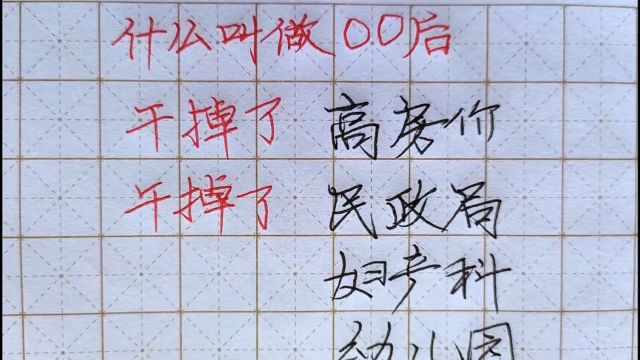 什么叫做00后
干掉了 高房价
干掉了 民政局
妇产科
幼儿园